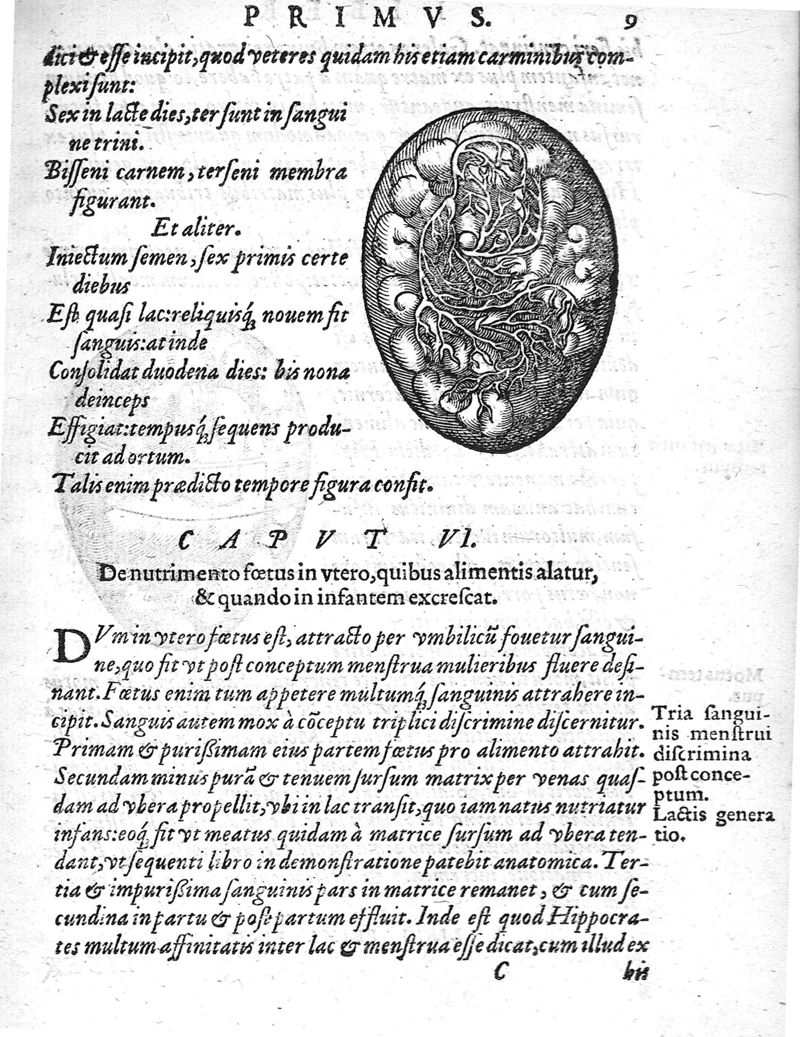 PRIMVS. 9
dici & esse incipit, quod veteres quidam his etiam carminibus com-
plexi sunt:
Sex in lacte dies, ter sunt in sangui
ne trini.
Bisseni carnem, terseni membra
figurant.
Et aliter.
Iniectum semen, sex primis certe
diebus
Est quasi lac: reliquisq́; nouem fit
sanguis: at inde
Consolidat duodena dies: bis nona
deinceps
Effigiat: tempusq́; sequens produ-
cit ad ortum.
Talis enim prædicto tempore figura confit.
CAPVT VI.
De nutrimento fœtus in vtero, quibus alimentis alatur,
& quando in infantem excrescat.
DVm in vtero fœtus est, attracto per vmbilicũ fouetur sangui-
ne, quo fit vt post conceptum menstrua mulieribus fluere desi-
nant. Fœtus enim tum appetere multumq́; sanguinis attrahere in-
cipit. Sanguis autem mox à cõceptu triplici discrimine discernitur.
Primam & purißimam eius partem fœtus pro alimento attrahit.
Secundam minus purã & tenuem sursum matrix per venas quas-
dam ad vbera propellit, vbi in lac transit, quo iam natus nutriatur
infans: eoq́; fit vt meatus quidam à matrice sursum ad vbera ten-
dant, vt sequenti libro in demonstratione patebit anatomica. Ter-
tia & impurißima sanguinis pars in matrice remanet, & cum se-
cundina in partu & post partum effluit. Inde est quod Hippocra-
tes multum affinitatis inter lac & menstrua esse dicat, cum illud ex
C his
Tria sangui-
nis menstrui
discrimina
post conce-
ptum.
Lactis genera
tio.